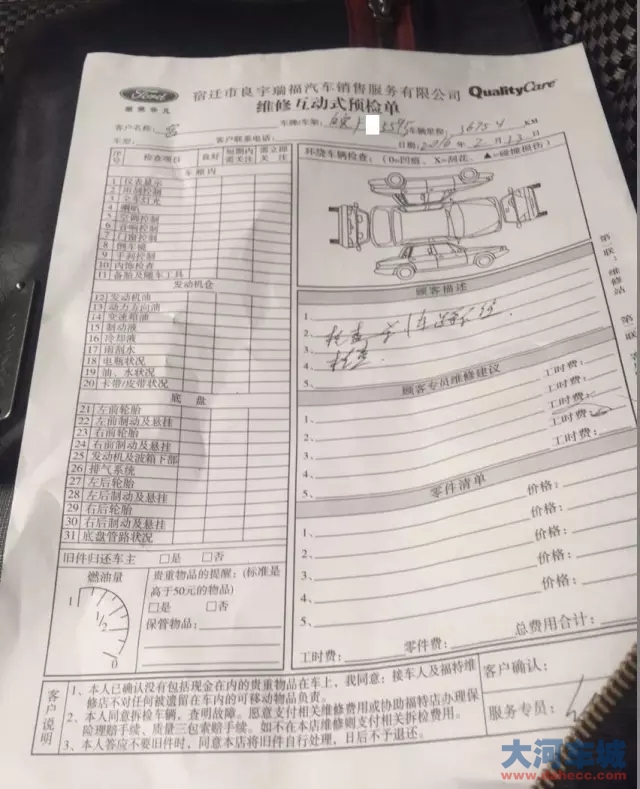 Ford
宿迁市良宇瑞福汽车销售服务有限公司
QualityCare
维修互动式预检单
客户名称：
车牌/车架：
5595
车辆里程：16754 KM
车型：
客户联系电话：
日期：2016年2月13日
序号 检查项目 良好 短期内需关注 需立即关注
环绕车辆检查：（0=凹痕、X=刮花、▲=碰撞损伤）
车厢内
1 仪表显示
4 喇叭
5 空调控制
6 音响控制
7 门窗控制
8 倒车镜
9 手刹控制
10 内饰检查
11 备胎及随车工具
发动机仓
12 发动机油
13 动力方向油
14 变速箱油
15 制动液
16 冷却液
17 雨刮水
18 电瓶状况
19 油、水状况
20 卡带/皮带状况
底盘
21 左前轮胎
22 左前制动及悬挂
23 右前轮胎
24 右前制动及悬挂
25 发动机及波箱下部
26 排气系统
27 左后轮胎
28 左后制动及悬挂
29 右后轮胎
30 右后制动及悬挂
31 底盘管路状况
旧件归还车主 □是 □否
燃油量
1
1/2
0
贵重物品的提醒：(标准是高于50元的物品)
□是 □否
保管物品：
顾客描述
1、
2、
3、检查
4、
5、
顾客专员维修建议
1、 工时费：
2、 工时费：
3、 工时费：
4、 工时费：
5、 工时费：
零件清单
1、 价格：
2、 价格：
3、 价格：
4、 价格：
5、
总费用合计：
工时费：
零件费：
第二联：维修站
第二联
客户说明
1、本人已确认没有包括现金在内的贵重物品在车上，我同意：接车人及福特维
修店不对任何被遗留在车内的可移动物品负责。
2、本人同意拆检车辆，查明故障。愿意支付相关维修费用或协助福特店办理保
险理赔手续、质量三包索赔手续。如不在本店维修则支付相关拆检费用。
3、本人答应不要旧件时，同意本店将旧件自行处理，日后不予退还。
客户确认：
服务专员：
大河车城